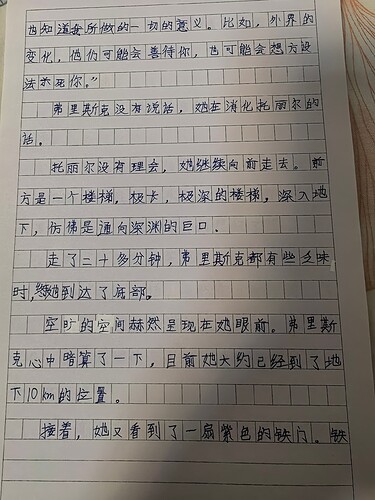 也知道我所做的一切的意义。比如,外界的
变化,他们可能会善待你,也可能会想方设
法弄死你。”
弗里斯克没有说话,她在消化托丽尔的
话。
托丽尔没有理会,她继续向前走去。前
方是一个楼梯,极长,极深的楼梯,深入地
下,仿佛是通向深渊的巨口。
走了二十多分钟,弗里斯克都有些乏味
时,她到达了底部。
空旷的空间赫然呈现在她眼前。弗里斯
克心中暗算了一下,目前她大约已经到了地
下10km的位置。
接着,她又看到了一扇紫色的铁门。铁